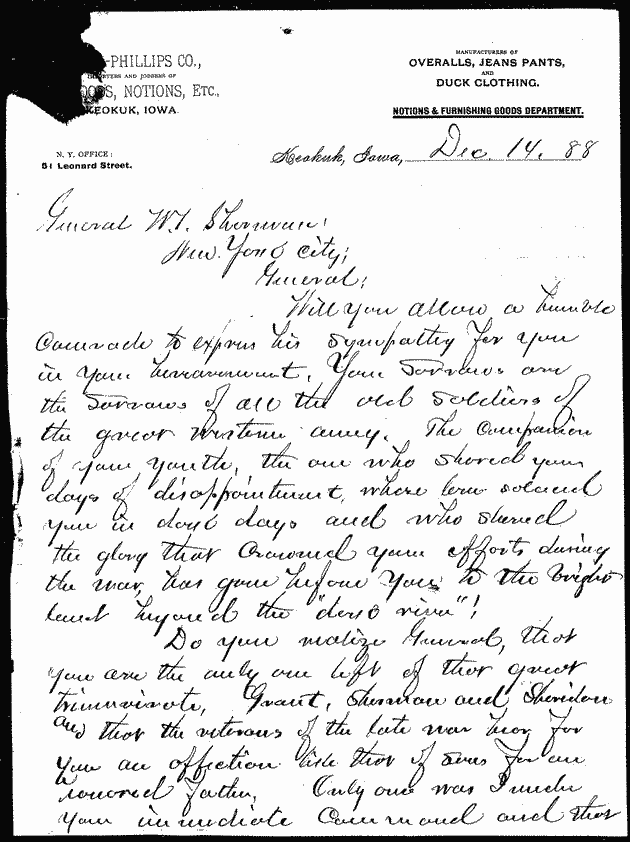 -PHILLIPS CO.,
IMPORTERS AND JOBBERS OF
GOODS, NOTIONS, ETC.,
KEOKUK, IOWA.
MANUFACTURERS OF
OVERALLS, JEANS PANTS,
AND
DUCK CLOTHING.
NOTIONS & FURNISHING GOODS DEPARTMENT.
N. Y. OFFICE:
51 Leonard Street.
Keokuk, Iowa, Dec. 14. 88
General W.T. Sherman;
New York City;
General;
Will you allow a humble
Comrade to express his sympathy for you
in your bereavement. Your sorrows are
the sorrows of all the old soldiers of
the great western army. The companion
of your youth, the one who shared your
days of disappointment, whose love
you in dark days and who shared
the glory that crowned your efforts during
the war, has gone before you to the bright
land beyond the "dark river"!
Do you realize General, that
you are the only one left of that great
triumvirate, Grant, Sherman and Sheridan
and that the veterans of the late war bear for
you an affection like that of sons for an
honored father. Only one was I under
your immediate command and that